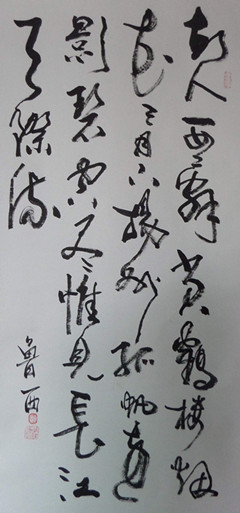 故人西辭黄鶴樓烟
花三月下揚州孤帆遠
影碧空尽惟見長江
天際流
魯西